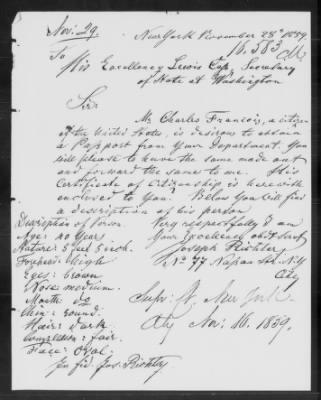 Nov: 29.
New York November 28th 1859.
16.383
To
His Excellency Lewis Cass, Secretary
of State at Washington
Sir
Mr Charles Francois, a citizen
of the United States, is desirous to obtain
a Passport from Your Department. You
will please to have the same made out
and forward the same to me. His
Certificate of Citizenship is herewith
enclosed to You. Below You will find
a description of his person
Description of Person
Very respectfully I am
Age: 20 Years
Your Excellency obdt Servt
Stature: 5 feet 5 inch.
Joseph Richter,
Forehead: high
No 77 Nassau Str. N.Y.
Eyes: brown
City
Nose: medium.
Mouth do
Supr. Ct. New York
Chin: round.
City Nov: 16. 1859.
Hair: dark
Complexion: fair.
Face: Oval.
In fid. Jos. Richter